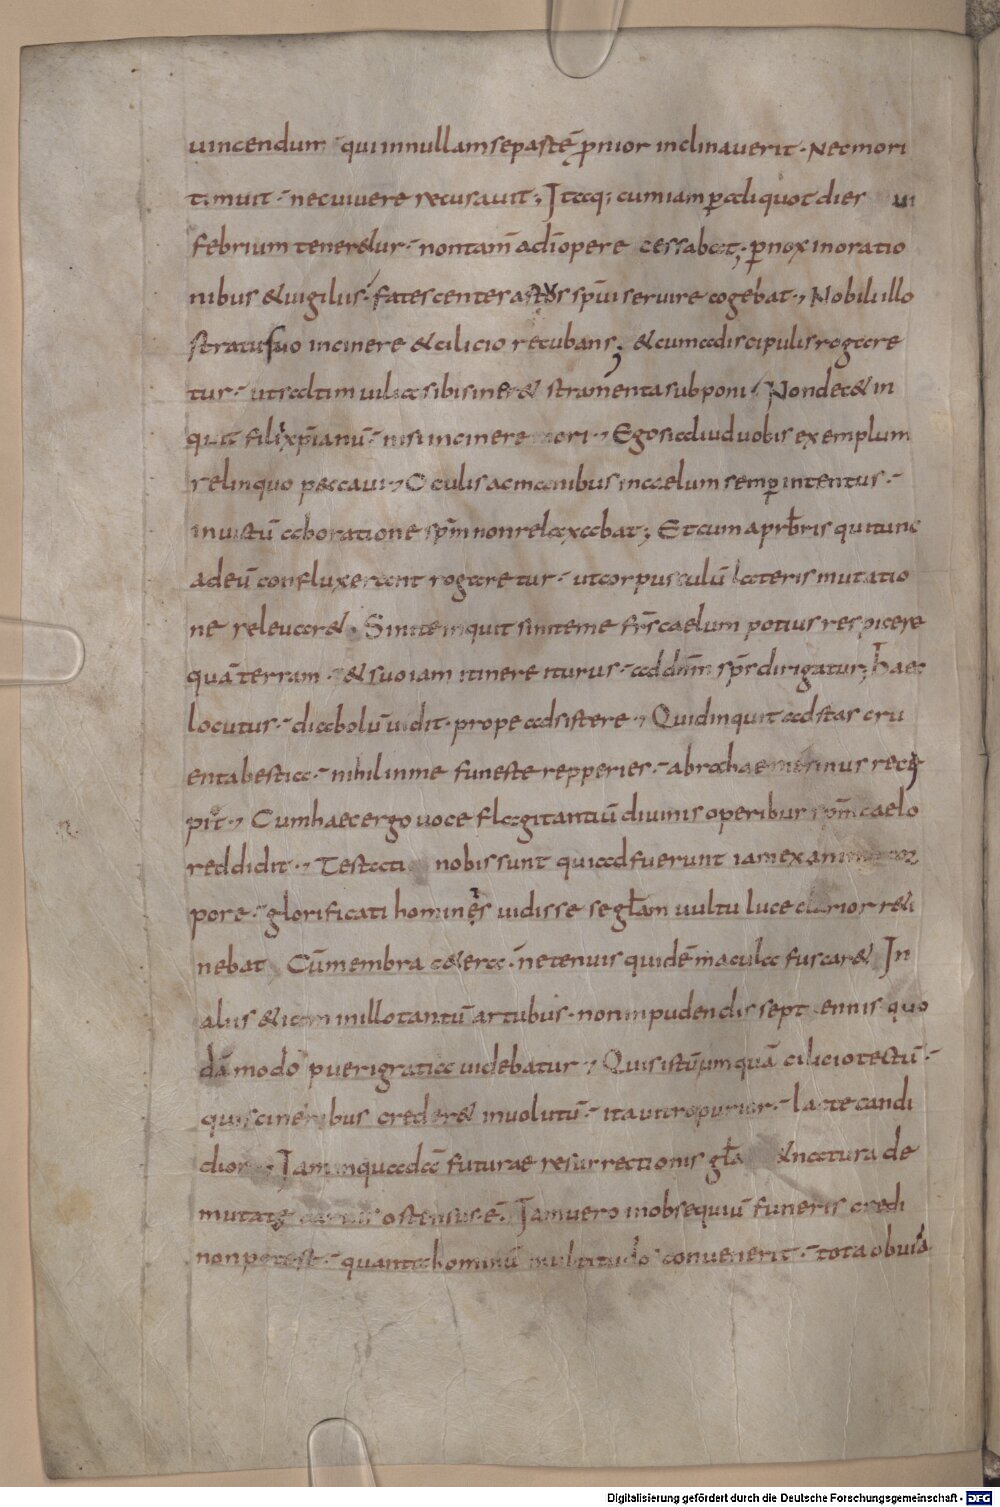 uincendum qui in nullam se parte p̄nior inclinauerit · Nec mori
timuit · nec uiuere recusauit ; Itaq; cum iam p aliquot dies ui
febrium teneretur · non tam̄ a dī opere cessabat ; p nox in oratio
nibus & uigiliis · fatescentes artus sp̄ui seruire cogebat · Nobili illo
stratu suo in cinere & cilicio recubans ; & cum a discipulis rogare
tur · ut saltim uilia sibi siner& stramenta subponi · Non dec& in
quit filii xp̄ianū · nisi in cinere mori · Ego si aliud uobis exemplum
relinquo peccaui · Oculis ac manibus in caelum semp intentus ·
inuictū ab oratione sp̄m non relaxabat ; Et cum a prb̄ris qui tunc
ad eū confluxerant rogaretur · ut corpusculū lateris mutatio
ne releuar& · Sinite inquit sinite me fr̄s caelum potius respicere
quā terram · & suo iam itinere iturus · ad dn̄m sp̄s dirigatur ; haec
locutus · diabolū uidit · prope adsistere · Quid inquit adstas cru
enta bestia · nihil in me funeste repperies · abrahae me sinus reci
pit · Cum hac ergo uoce flagitantiū diuinis operibus sp̄m caelo
reddidit · Testati nobis sunt qui adfuerunt iam exanimi cor
pore · glorificati hominis uidisse se gl̄am uultu luce clarior r&i
nebat Cū membra c&era · ne tenuis quidē macula fuscar& In
aliis & iam in illo tantū artubus · non inpudendis septennis quo
dā modo pueri gratia uidebatur · Quis istū umquā cilicio tectū ·
quis cineribus creder& inuolutū · ita uitro purior · lacte candi
dior · Iam in quadā futurae resurrectionis gl̄a & natura de
mutatę carnis ostensus ē · Iam uero in obsequiū funeris credi
non potest · quanta hominū multitudo conuenerit · tota obuia